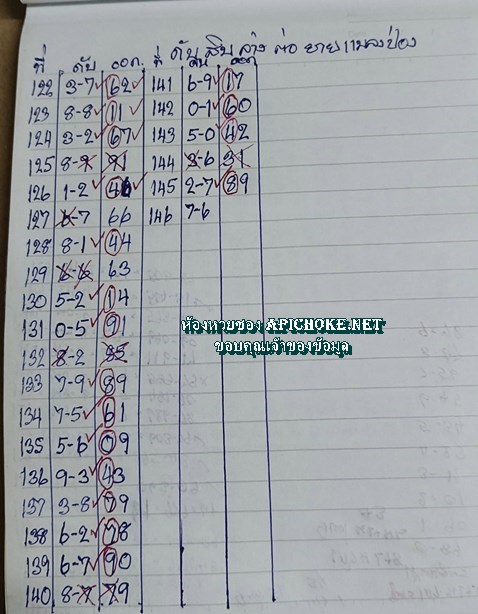 ดับ สิบ ล่าง ต่อ ยาย แมลงป่อง
ที่ ดับ ออก. ที่ ดับ ออก
122 3-7 62 141 6-9 17
123 8-8 11 142 0-1 60
124 3-2 67 143 5-0 42
125 8-9 91 144 3-6 31
126 1-2 46 145 2-7 89
127 6-7 66 146 7-6
128 8-1 44
129 6-6 63
130 5-2 14
131 0-5 91
132 8-2 85
133 7-9 89
134 7-5 61
135 5-6 09
136 9-3 43
137 3-8 79
138 6-2 78
139 6-7 90
140 8-7 79
ห้องหวยซอง APICHOKE.NET
ขอบคุณเจ้าของข้อมูล